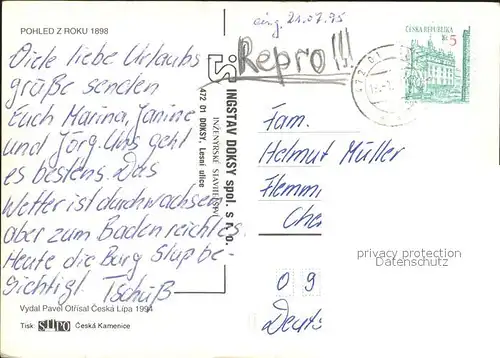 POHLED Z ROKU 1898
eing. 21.07.95
Repro!!!
ČESKÁ REPUBLIKA
Kč 5
472 01
Viele liebe Urlaubs
grüße senden
Euch Marina, Janine
und Jörg. Uns geht
es bestens. Das
Wetter ist durchwachsen
aber zum Baden reicht es.
Heute die Burg Slup be-
sichtigt. Tschüß
INGSTAV DOKSY spol. s r. o.
INŽENÝRSKÉ STAVITELSTVÍ
472 01 DOKSY, Lesní ulice
Fam.
Helmut Müller
Flemmi
Che
privacy protection
Datenschutz
0 9
Deuts
Vydal Pavel Otřísal Česká Lípa 1994
Tisk: Česká Kamenice